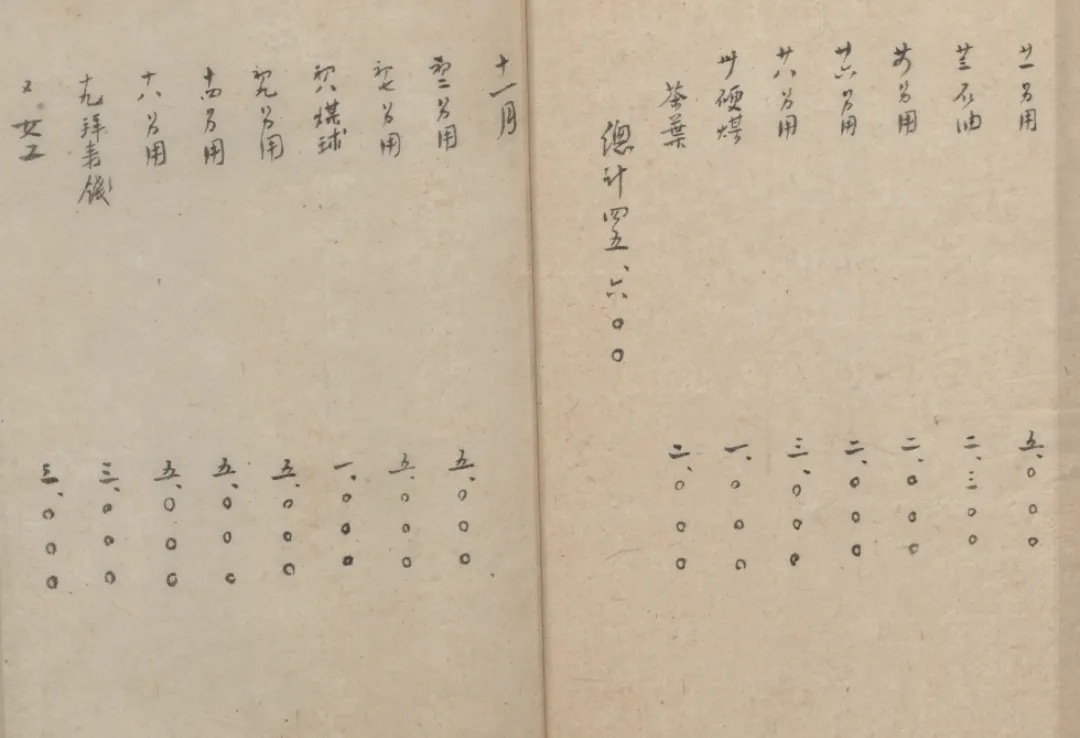 廿一另用 五、〇〇〇
廿三石油 二、三〇〇
另用 二、〇〇〇
廿六另用 二、〇〇〇
廿八另用 三、〇〇〇
卅硬煤 一、〇〇〇
茶葉 二、〇〇〇
總計四五、六〇〇
十一月
初二另用 五、〇〇〇
初七另用 五、〇〇〇
初八煤球 一、〇〇〇
初九另用 五、〇〇〇
十四另用 五、〇〇〇
十八另用 五、〇〇〇
十九拜錢 三、〇〇〇
又女工 三、〇〇〇